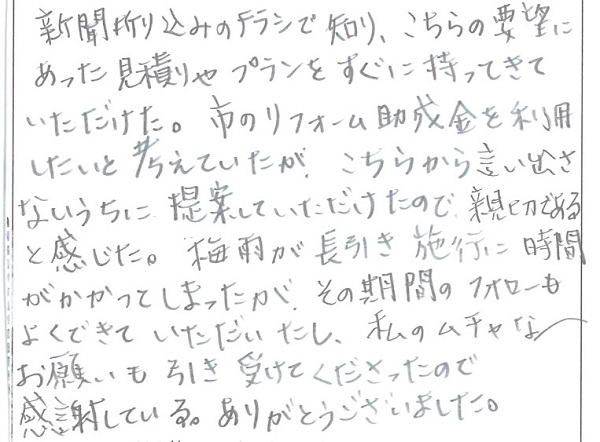 新聞折り込みのチラシで知り、こちらの要望に
あった見積りやプランをすぐに持ってきて
いただけた。市のリフォーム助成金を利用
したいと考えていたが、こちらから言い出さ
ないうちに提案していただけたので、親切である
と感じた。梅雨が長引き施行に時間
がかかってしまったが、その期間のフォローも
よくできていただいたし、私のムチャな
お願いも引き受けてくださったので
感謝している。ありがとうございました。